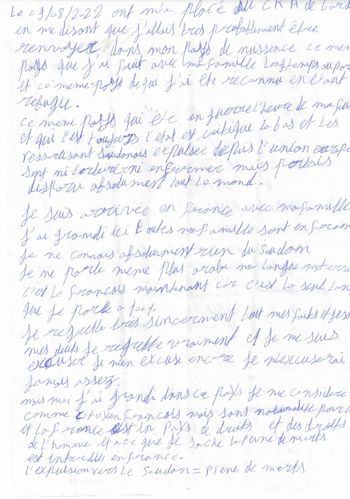 Le 09/08/2022 ont m'a placé au CRA de bord
en me disant que j'allais tres probablement être
renvoyer dans mon pays de naissence ce meme
pays que j'ai fuit avec ma famille longtemps aupar
et ce meme pays de qui j'ai ete reconnu en étant
refugié.
ce meme pays qui été en guerre l'heure de ma fui
et qui l'est toujours l'état est critique la bas et les
ressortissant soudanais expulsée depuis l'union europe
sont ni torturé ni enfermer mais parfois
disparu absolument tout le monde.
Je suis arrivée en France avec ma famille
J'ai grandi ici toutes ma famille sont en France
Je ne connais absolument rien du Soudan
Je ne parle meme plus arabe ma langue materne
c'est le français maintenant car c'est la seul lang
que je parle a 100%.
Je regrette tres sincerment tout mes faits et gest
mes delits je regrette vraiment et je me suis
excuser je m'en excuse encore je m'excuserai
jamais assez.
mais moi j'ai grandi dans ce pays je me considere
comme citoyen francais mais sans nationalité pour
et la France est un pays de droits et des droits
de l'homme et a ce que je sache la peine de morts
est interdite en France.
L'expulsion vers le Soudan = peine de morts